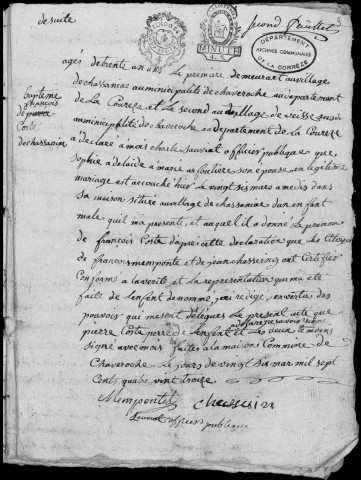 de suite
second feuillet
3
MINUTE
DÉPARTEMENT
ARCHIVES COMMUNALES
DE LA CORRÈZE
agés de trente ans le premiere demeurant au village
de chassaniac au municipalité de chaveroche au departement
de la Coureze et le second au village de veisse susdi
au municipalité de chaveroche au departement de la Coureze
a declare a mois charle Sauviat officier publique que
sophie adelaide marie son epouse en legitime
mariage est accouché hier le vingt sis mars a medis dans
sa maison située au village de chassaniac d'un enfent
male quil ma presenté et auquel il a donné le prenom
de françois Coste dapres cette declaration que les Citoyens
de françois memponte et de jean chasseing ont certifier
Conforme a la verité et la representation qui ma été
faite de lenfent denommé, jai redigé, en vertu des
pouvoir qui me sont delegues le present acte que
pierre Coste perre de lenfent et les deux temoins
signé avec mois faite a la maison Commune de
Chaveroche le jours de vingt sis mar mil sept
Cents quatre vint treize
Mempontel chasseing
Sauviat officier publique
bapteme
françois
de pierre
Coste
de chassaniac